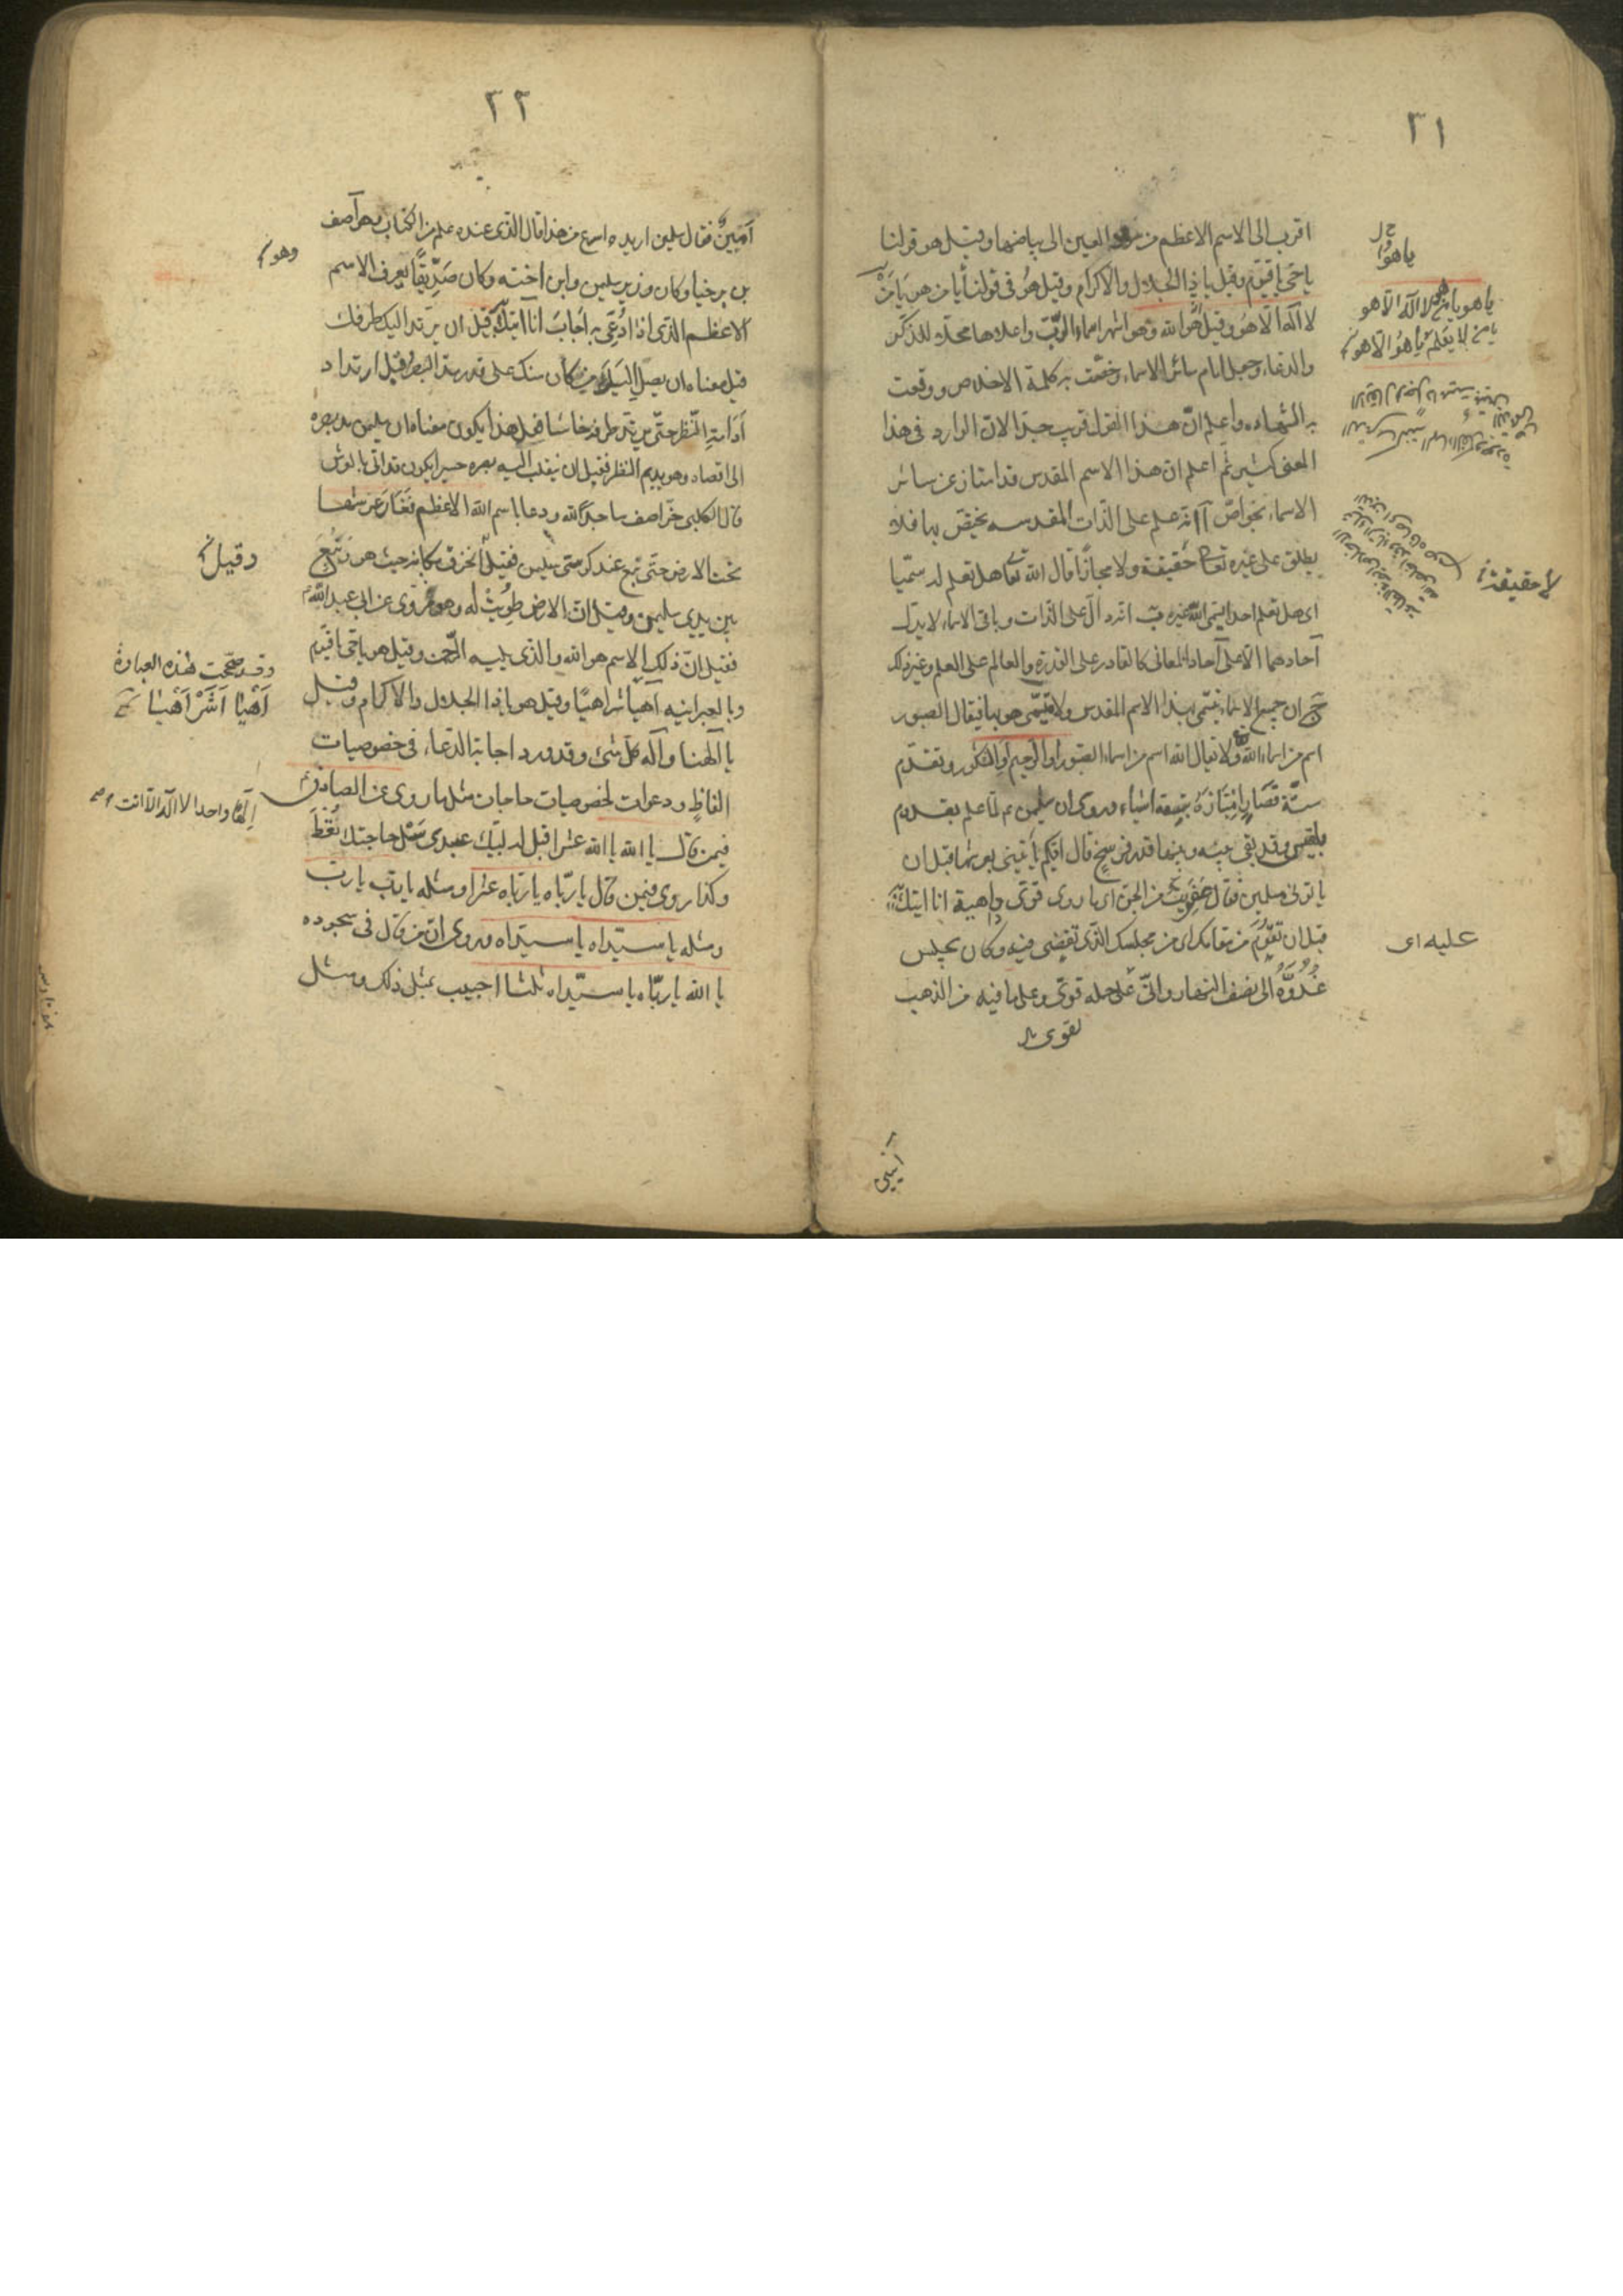 ٣١
اقرب الى الاسم الاعظم من سواد العين الى بياضها وقيل هو قولنا
يا حي يا قيوم وقيل يا ذا الجلال والاكرام وقيل هو في قولنا يا من هو يا من
لا اله الا هو وقيل هو الله وهو اشهر اسماء الرب واعلاها محلا للذكر
والدعاء وجعل امام سائر الاسماء وخصت به كلمة الاخلاص ووقعت
به الشهادة واعلم ان هذا القول قريب جدا لان الوارد في هذا
المعنى كثير ثم اعلم ان هذا الاسم المقدس قد امتاز عن سائر
الاسماء بخواص آ انه علم على الذات المقدسه يختص بها فلا
يطلق على غيره تعالى حقيقة ولا مجازا قال الله تعالى هل تعلم له سميا
اى هل تعلم احدا يسمى الله غيره ب انه دال على الذات وباقي الاسماء لا يدل
آحادها الا على آحاد المعاني كالقادر على القدرة والعالم على العلم وغير ذلك
ج ان جميع الاسماء تسمى بهذا الاسم المقدس ولا يسمى هو بها فيقال الصبور
اسم من اسماء الله ولا يقال الله اسم من اسماء الصبور او الرحيم او الشكور وتقدم
ستة فصار امتيازه بتسعة اشياء وروى ان سليمن ع لما علم بقدوم
بلقيس وقد بقي بينه وبينها قدر فرسخ قال ايكم يأتيني بعرشها قبل ان
ياتوني مسلمين فقال عفريت من الجن اى مارد قوى داهية انا اتيك به
قبل ان تقوم من مقامك اى من مجلسك الذى تقضى فيه وكان يجلس
غدوة الى نصف النهار وانى على حمله قوى وعلى ما فيه من الذهب
لقوى
يا هو
يا هو يا من هو لا اله الا هو
يا من لا يعلم ما هو الا هو
لا حقيقة
عليه اى
٣٢
امين فقال سليمن اريد اسرع من هذا قال الذى عنده علم من الكتاب وهو آصف
بن برخيا وكان وزير سليمن وابن اخته وكان صديقا يعرف الاسم
الاعظم الذى اذا دعى به اجاب انا اتيك به قبل ان يرتد اليك طرفك
قيل معناه ان يصل اليك من كان منك على قدر مد البصر وقيل ارتداد
ادامة النظر حتى يرتد طرفه خاسئا فعلى هذا يكون معناه ان سليمن مد بصره
الى اقصاه وهو يديم النظر فقبل ان ينقلب اليه بصره حسيرا يكون قد اتى بالعرش
قال الكلبى خر آصف ساجدا لله ودعا باسم الله الاعظم فغار عرشها
تحت الارض حتى نبع عند كرسى سليمن فقيل انخرق مكانه حيث هو ونبع
بين يدى سليمن وقيل ان الارض طويت له وهو مروى عن ابى عبد الله
فقيل ان ذلك الاسم هو الله والذى يليه الرحمن وقيل هو يا حي يا قيوم
وبالعبرانيه آهيا شراهيا وقيل هو يا ذا الجلال والاكرام وقيل
يا الهنا واله كل شئ وقد ورد اجابة الدعاء في خصوصيات
الفاظ ودعوات لخصوصيات حاجات مثل ما روى عن الصادق
فيمن قال يا الله يا الله عشرا قيل له لبيك عبدى سل حاجتك تعط
وكذا روى فيمن قال يا رباه يا رباه عشرا ومثله يا رب يا رب
ومثله يا سيداه يا سيداه وروى ان من قال في سجوده
يا الله يا رباه يا سيداه ثلثا اجيب بمثل ذلك ومثل
وهو
وقيل
وقد صححت هذه العبارة
اهيا اشر اهيا
الها واحدا لا اله الا انت